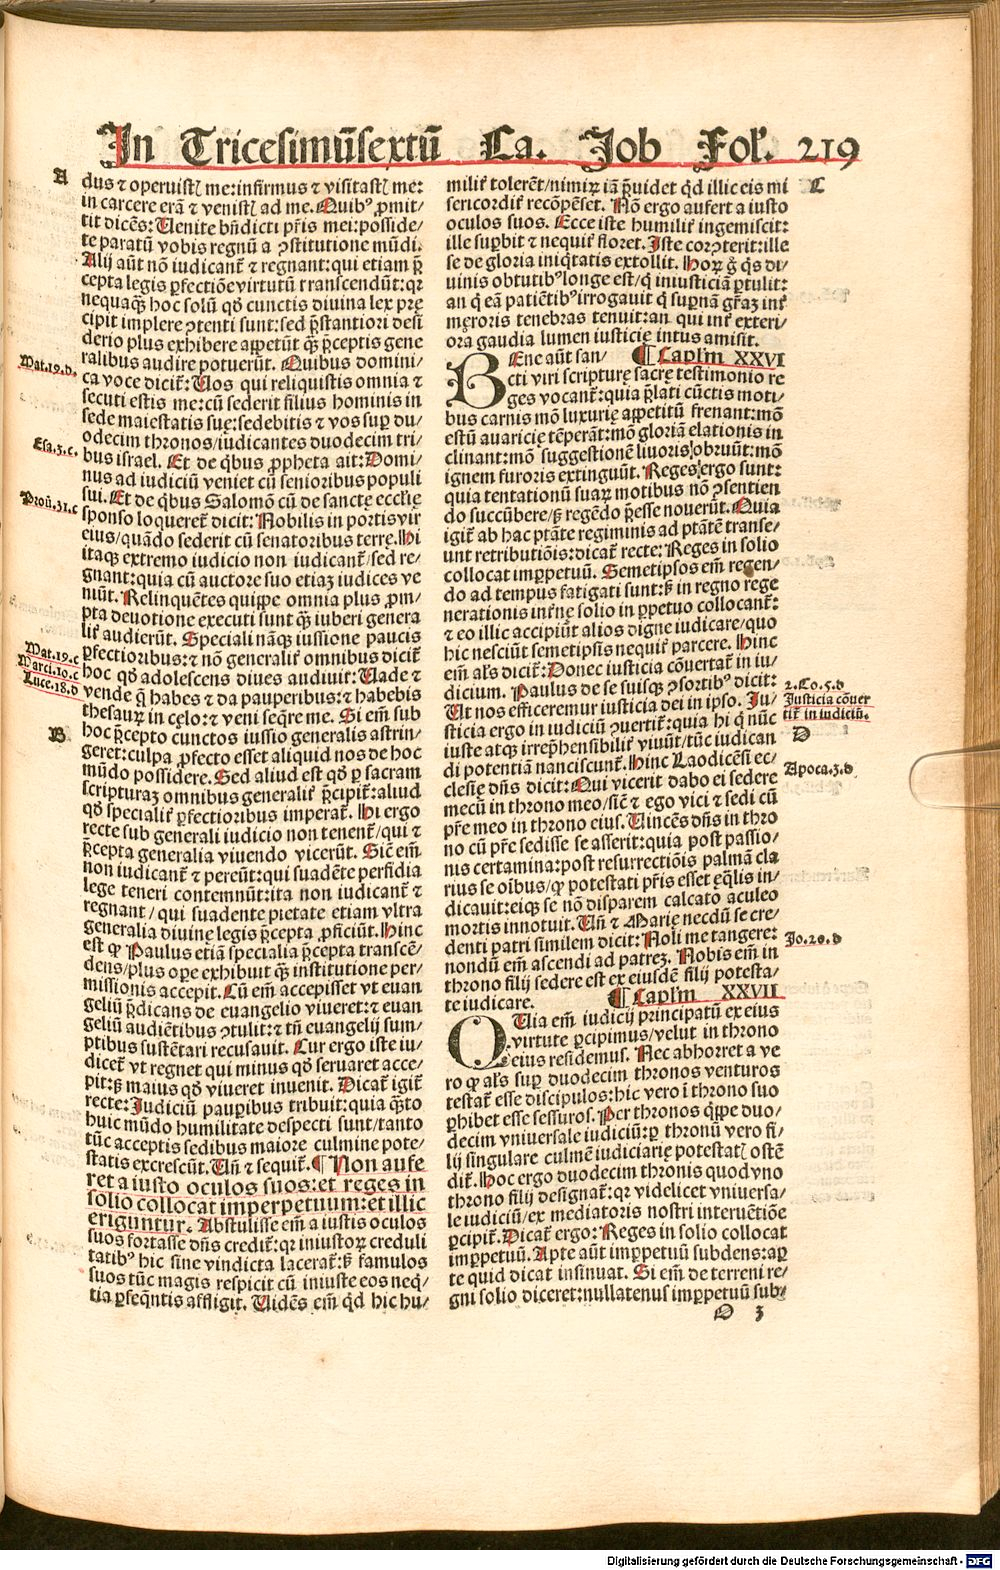 In Tricesimūsextū Ca. Job Fol'. 219
A
dus ⁊ operuistꝭ me: infirmus ⁊ visitastꝭ me:
in carcere erā ⁊ venistꝭ ad me. Quibꝰ ꝓmit/
tit dicēs: Uenite bn̄dicti pr̄is mei: posside/
te paratū vobis regnū a ꝯstitutione mūdi.
Alij aūt nō iudicanṫ ⁊ regnant: qui etiam p̄
cepta legis ꝑfectiōe virtutū transcendūt: qꝛ
nequaq̄ꝫ hoc solū qď cunctis diuina lex pre
cipit implere ꝯtenti sunt: sed p̄stantiori desi
derio plus exhibere appetūt q̄ꝫ p̄ceptis gene
ralibus audire potuerūt. Quibus domini/
Mat.19.d.
ca voce diciṫ: Uos qui reliquistis omnia ⁊
secuti estis me: cū sederit filius hominis in
sede maiestatis suę: sedebitis ⁊ vos suꝑ du/
odecim thronos/ iudicantes duodecim tri/
Esa.3.c.
bus israel. Et de q̇bus ꝓpheta ait: Domi/
nus ad iudiciū veniet cū senioribus populi
sui. Et de q̇bus Salomō cū de sanctę eccľię
Prou.31.c
sponso loquereṫ dicit: Nobilis in portis vir
eius/ quādo sederit cū senatoribus terrę. Hi
itaqꝫ extremo iudicio non iudicanṫ/ sed re/
gnant: quia cū auctore suo etiaꝫ iudices ve
niūt. Relinquētes quippe omnia plus ꝓm/
pta deuotione executi sunt q̄ꝫ iuberi genera
liṫ audierūt. Speciali nāqꝫ iussione paucis
ꝑfectioribus: ⁊ nō generaliṫ omnibus diciṫ
Mat.19.c
Marci.10.c
Luce.18.d
hoc qď adolescens diues audiuit: Uade ⁊
vende q̄ habes ⁊ da pauperibus: ⁊ habebis
thesauꝝ in cęlo: ⁊ veni seq̄re me. Si em̄ sub
B
hoc p̄cepto cunctos iussio generalis astrin/
geret: culpa ꝓfecto esset aliquid nos de hoc
mūdo possidere. Sed aliud est qď ꝑ sacram
scripturaꝫ omnibus generaliṫ p̄cipiṫ: aliud
qď specialiṫ ꝑfectioribus imperaṫ. Hi ergo
recte sub generali iudicio non tenenṫ/ qui ⁊
p̄cepta generalia viuendo vicerūt. Sic̄ em̄
non iudicanṫ ⁊ pereūt: qui suadēte perfidia
lege teneri contemnūt: ita non iudicanṫ ⁊
regnant/ qui suadente pietate etiam vltra
generalia diuine legis p̄cepta ꝓficiūt. Hinc
est ꝙ Paulus etiā specialia p̄cepta transcē/
dens/ plus oꝑe exhibuit q̄ꝫ institutione per/
missionis accepit. Cū em̄ accepisset vt euan
geliū p̄dicans de euangelio viueret: ⁊ euan
geliū audiētibus ꝯtulit: ⁊ tn̄ euangelij sum/
ptibus sustētari recusauit. Cur ergo iste iu/
diceṫ vt regnet qui minus qď seruaret acce/
pit: sꝫ maius qď viueret inuenit. Dicaṫ igiṫ
recte: Judiciū pauꝑibus tribuit: quia q̄ꝫto
huic mūdo humilitate despecti sunt/ tanto
tūc acceptis sedibus maiore culmine pote/
statis excrescūt. Un̄ ⁊ sequiṫ. ¶ Non aufe
ret a iusto oculos suos: et reges in
solio collocat imperpetuum: et illic
eriguntur. Abstulisse em̄ a iustis oculos
suos fortasse dn̄s crediṫ: qꝛ iniustoꝝ creduli
tatibꝰ hic sine vindicta laceraṫ: sꝫ famulos
suos tūc magis respicit cū iniuste eos neq̇/
tia ꝑseq̄ntis affligit. Uidēs em̄ q̇d hic hu/
C
militṫ tolerēt/ nimiꝝ iā p̄uidet q̇d illic eis mi
sericorditṫ recōpēset. Nō ergo aufert a iusto
oculos suos. Ecce iste humilitṫ ingemiscit:
ille suꝑbit ⁊ nequitṫ floret. Iste cor ꝯterit: ille
se de gloria iniq̇tatis extollit. Hoꝝ g̊ q̇s di/
uinis obtutibꝰ longe est/ q̇ iniusticiā ꝑtulit:
an q̇ eā patiētibꝰ irrogauit q̇ suꝑnā gr̄aꝫ inṫ
męroris tenebras tenuit: an qui inṫ exteri/
ora gaudia lumen iusticię intus amisit.
¶ Capľm XXVI
BEne aūt san/
cti viri scripturę sacrę testimonio re
ges vocanṫ: quia p̄lati cūctis moti/
bus carnis mō luxurię appetitū frenant: mō
estū auaricię tēperāt: mō gloriā elationis in
clinant: mō suggestionē liuoris obruūt: mō
ignem furoris extinguūt. Reges ergo sunt:
quia tentationū suaꝝ motibus nō ꝯsentien
do succūbere/ sꝫ regēdo p̄esse nouerūt. Quia
igiṫ ab hac ptāte regiminis ad ptātē transe/
unt retributiōis: dicaṫ recte: Reges in solio
collocat imꝑpetuū. Semetipsos em̄ regen/
do ad tempus fatigati sunt: sꝫ in regno rege
nerationis intṅe solio in ꝑpetuo collocanṫ:
⁊ eo illic accipiūt alios digne iudicare/ quo
hic nesciūt semetipsis nequiṫ parcere. Hinc
em̄ aľs diciṫ: Donec iusticia cōuertaṫ in iu/
dicium. Paulus de se suisqꝫ ꝯsortibꝰ dicit:
2.Co.5.d
Ut nos efficeremur iusticia dei in ipso. Ju/
Justicia cōuer
titṫ in iudiciū.
sticia ergo in iudiciū ꝯuertiṫ: quia hi q̇ nūc
D
iuste atqꝫ irrep̄hensibilitṫ viuūt/ tūc iudican
di potentiā nanciscunṫ. Hinc Laodicēsi ec/
Apoca.3.d.
clesię dn̄s dicit: Qui vicerit dabo ei sedere
mecū in throno meo/ sic̄ ⁊ ego vici ⁊ sedi cū
pr̄e meo in throno eius. Uincēs dn̄s in thro
no cū pr̄e sedisse se asserit: quia post passio/
nis certamina: post resurrectiōis palmā cla
rius se oībus/ ꝙ potestati pr̄is esset eq̄lis in/
dicauit: eiqꝫ se nō disparem calcato aculeo
mortis innotuit. Un̄ ⁊ Marie necdū se cre/
denti patri similem dicit: Noli me tangere:
Jo.20.d
nondū em̄ ascendi ad patreꝫ. Nobis em̄ in
throno filij sedere est ex eiusdē filij potesta/
te iudicare. ¶ Capľm XXVII
QUia em̄ iudicij principatū ex eius
virtute ꝑcipimus/ velut in throno
eius residemus. Nec abhorret a ve
ro ꝙ aľs suꝑ duodecim thronos venturos
testaṫ esse discipulos: hic vero ī throno suo
ꝑhibet esse sessuros. Per thronos q̇ppe duo/
decim vniuersale iudiciū: ꝑ thronū vero fi/
lij singulare culmē iudiciarię potestatꝭ ostē
diṫ. Hoc ergo duodecim thronis quod vno
throno filij designaṫ: qꝛ videlicet vniuersa/
le iudiciū/ ex mediatoris nostri interuētiōe
ꝑcipiṫ. Dicaṫ ergo: Reges in solio collocat
imꝑpetuū. Apte aūt imꝑpetuū subdens: aꝑ
te quid dicat insinuat. Si em̄ de terreni re/
gni solio diceret: nullatenus imꝑpetuū sub/
O 3
Digitalisierung gefördert durch die Deutsche Forschungsgemeinschaft - DFG